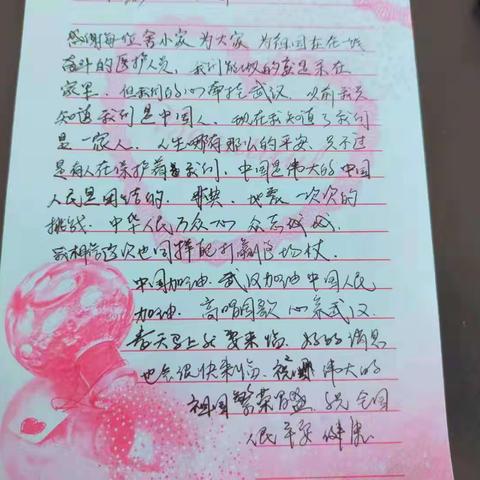 感谢每位舍小家为大家 为祖国在在一线
奋斗的医护人员，我们能做的就是呆在
家里，但我们的心牵挂武汉，以前我只
知道我们是中国人，现在我知道了我们
是一家人，人生哪有那么的平安，只不过
是有人在保护着我们，中国是伟大的中国
人民是团结的，非典，地震一次次的
挑战，中华人民万众一心 众志成城，
我相信这次也同样能打赢这场仗．
中国加油 武汉加油 中国人民
加油．高唱国歌 心系武汉．
春天马上就要来临．好的消息
也会很快来临．祝 伟大的
祖国繁荣昌盛．祝全国
人民平安 健康．